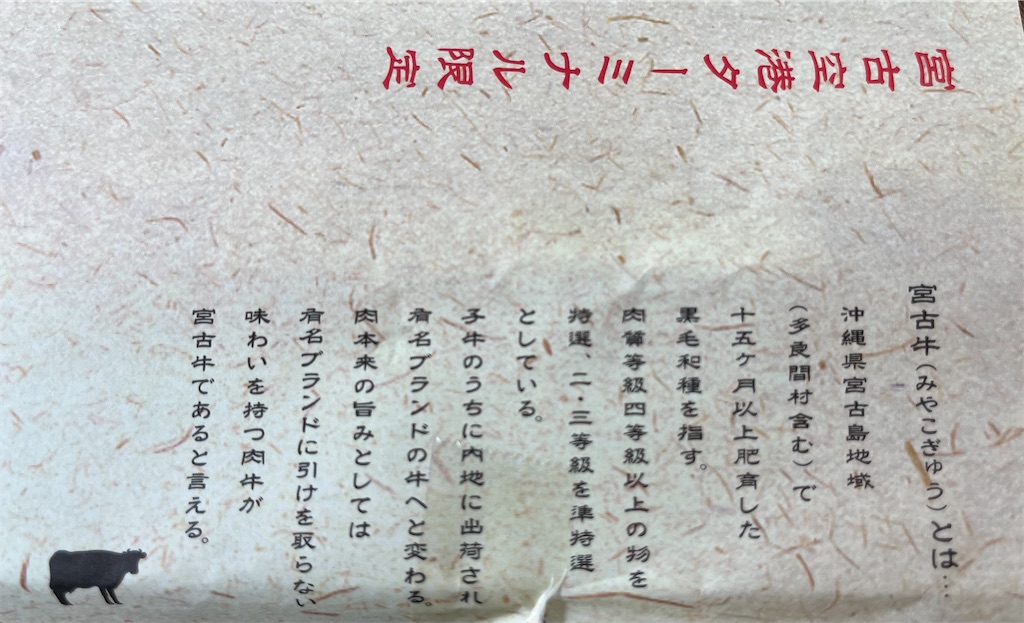 宮古空港ターミナル限定
宮古牛(みやこぎゅう)とは…
沖縄県宮古島地域
(多良間村含む)で
十五ヶ月以上肥育した
黒毛和種を指す。
肉質等級四等級以上の物を
特選、二・三等級を準特選
としている。
子牛のうちに内地に出荷され
有名ブランドの牛へと変わる。
肉本来の旨みとしては
有名ブランドに引けを取らない
味わいを持つ肉牛が
宮古牛であると言える。